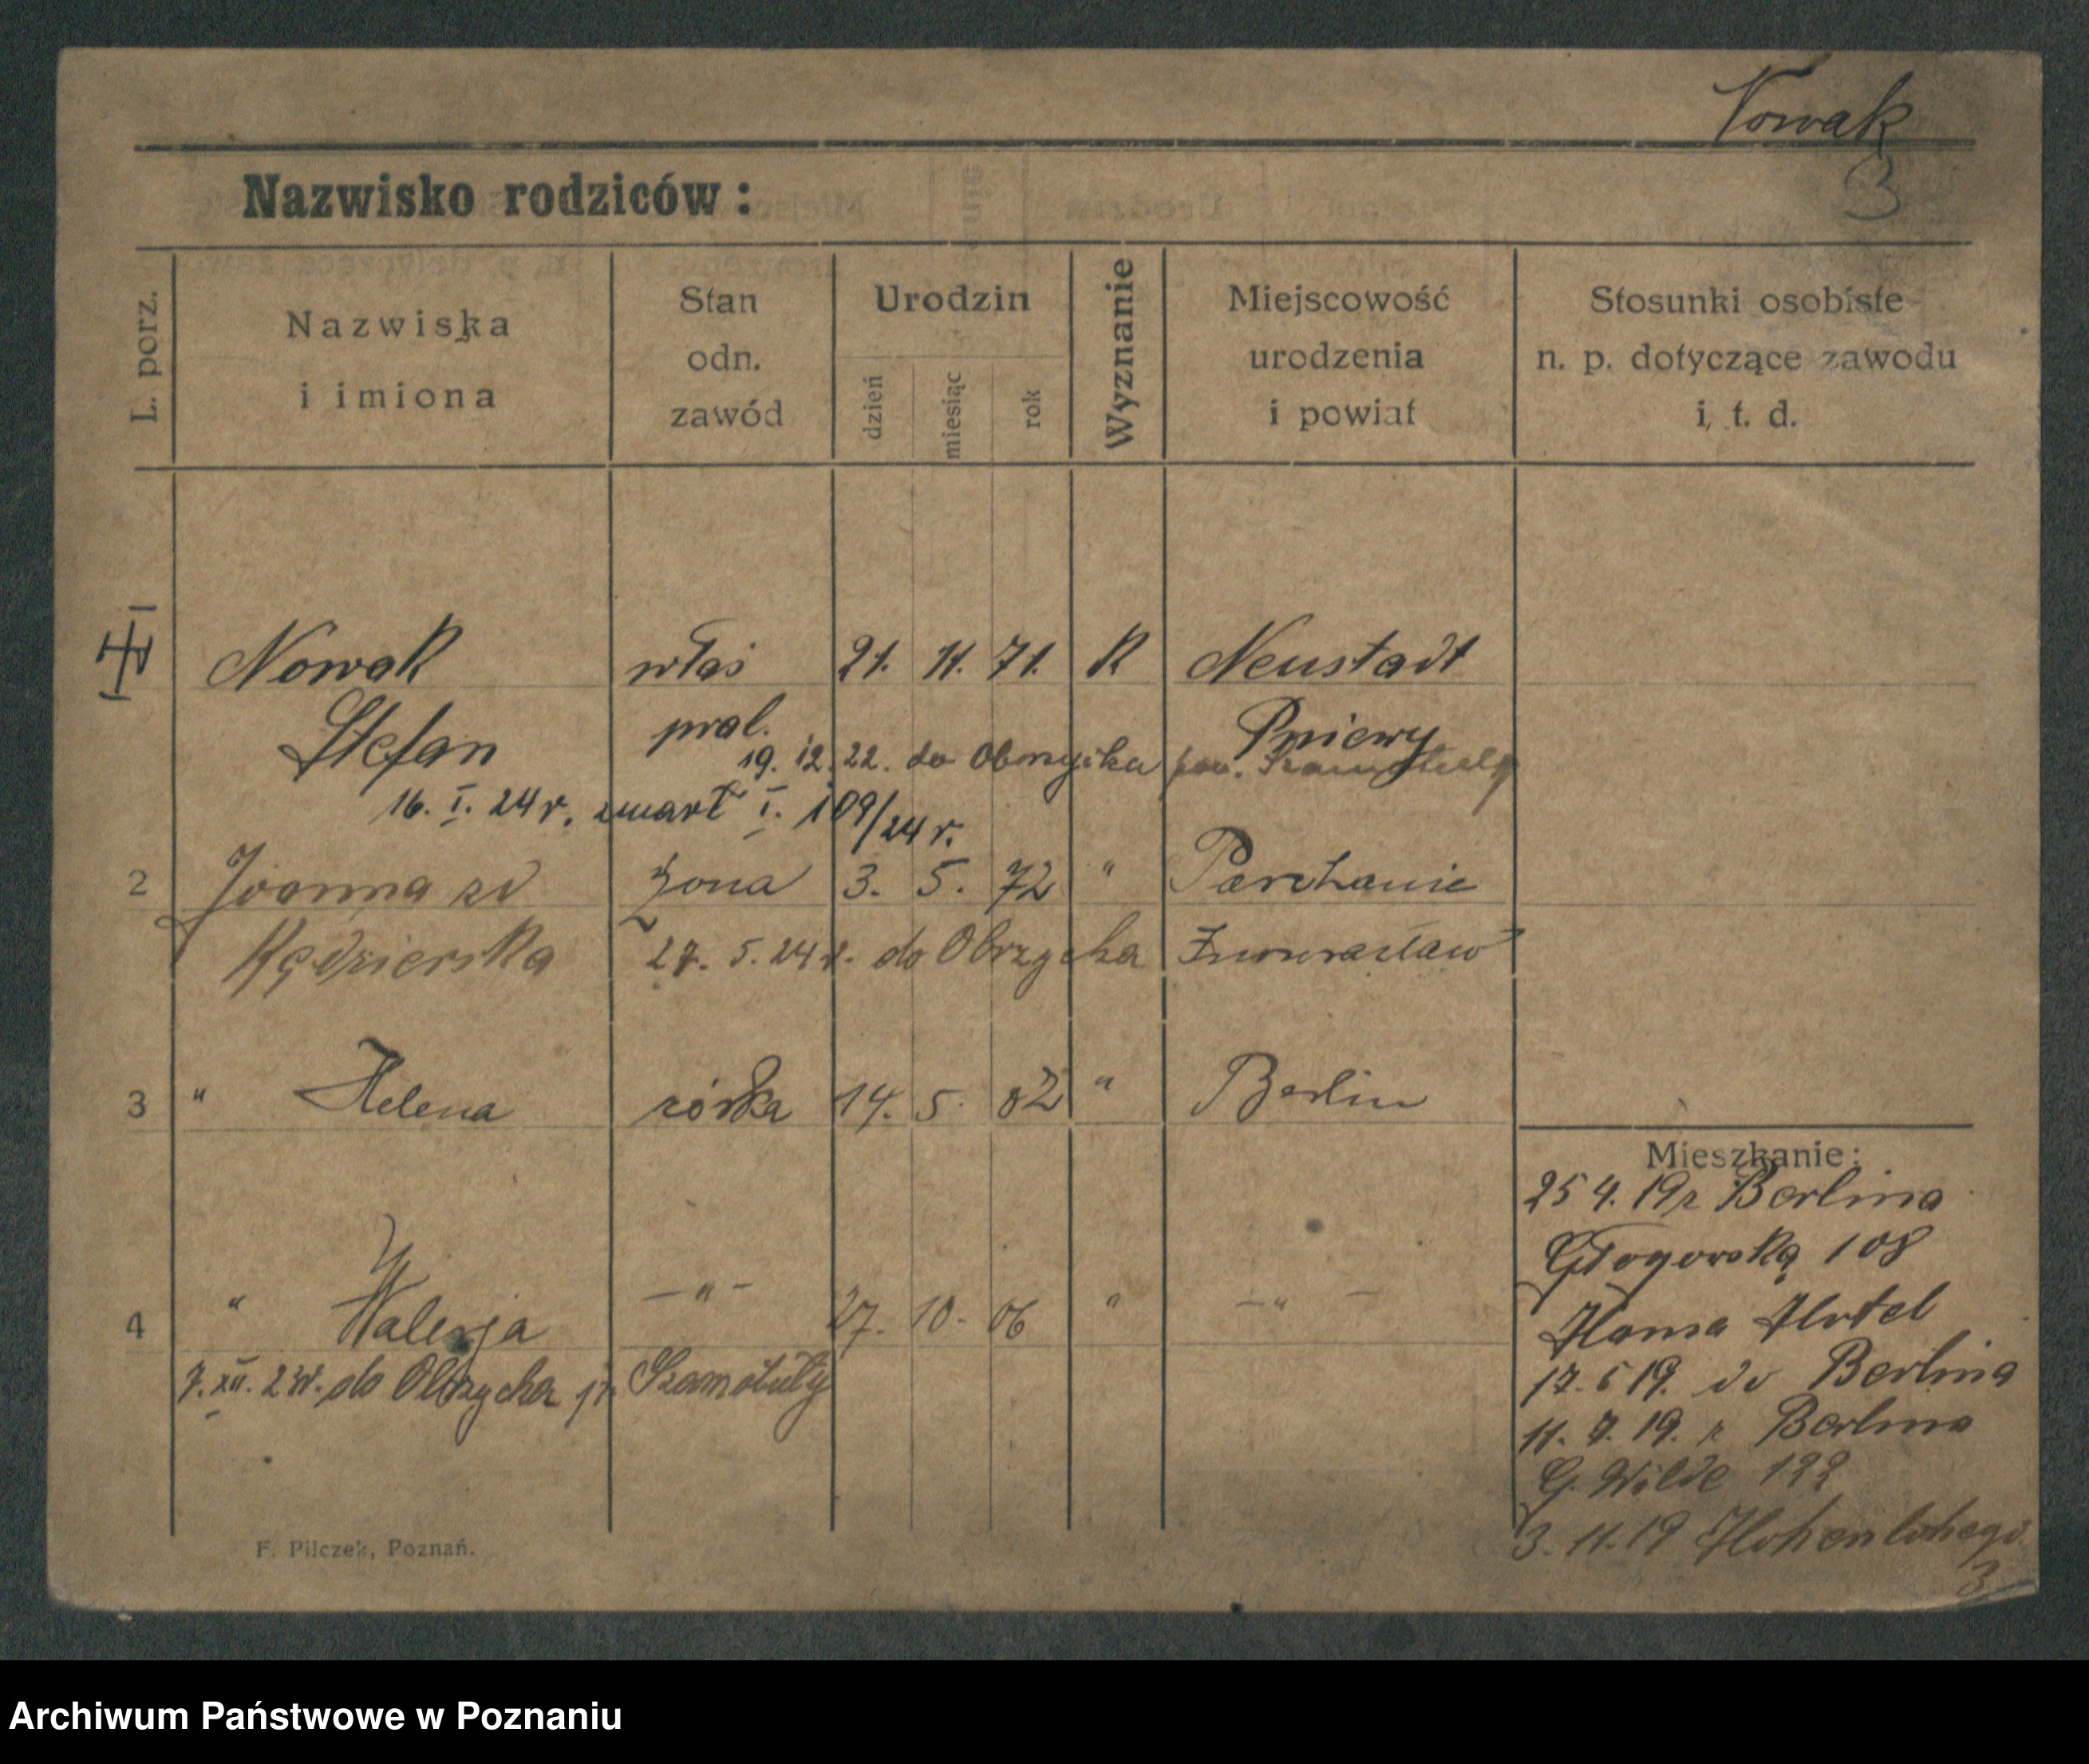 Nowak
3
Nazwisko rodziców:
L. porz.
Nazwiska
i imiona
Stan
odn.
zawód
Urodzin
dzień
miesiąc
rok
Wyznanie
Miejscowość
urodzenia
i powiat
Stosunki osobiste
n. p. dotyczące zawodu
i. t. d.
1 Nowak właś 21. 11. 71. K Neustadt
Stefan pral. Pniewy
19. 12. 22. do Obrzycka pow. Szamotuły
16. I. 24 r. zmarł I. 109/24 r.
2 Joanna zd żona 3. 5. 72 " Parchanie
Kędzierska 27. 5. 24 r. do Obrzycka Inowrocław
3 " Helena córka 14. 5. 02 " Berlin
4 " Walerja — " — 27. 10. 06 " — " —
7. XII. 23r. do Obrzycka p. Szamotuły
Mieszkanie:
25 4. 19 z Berlina
Głogowska 108
Hansa Hotel
17. 6 19. do Berlina
11. 7. 19. z Berlina
G. Wilde 122
3. 11. 19 Hohenlohego
3
F. Pilczek, Poznań.
Archiwum Państwowe w Poznaniu